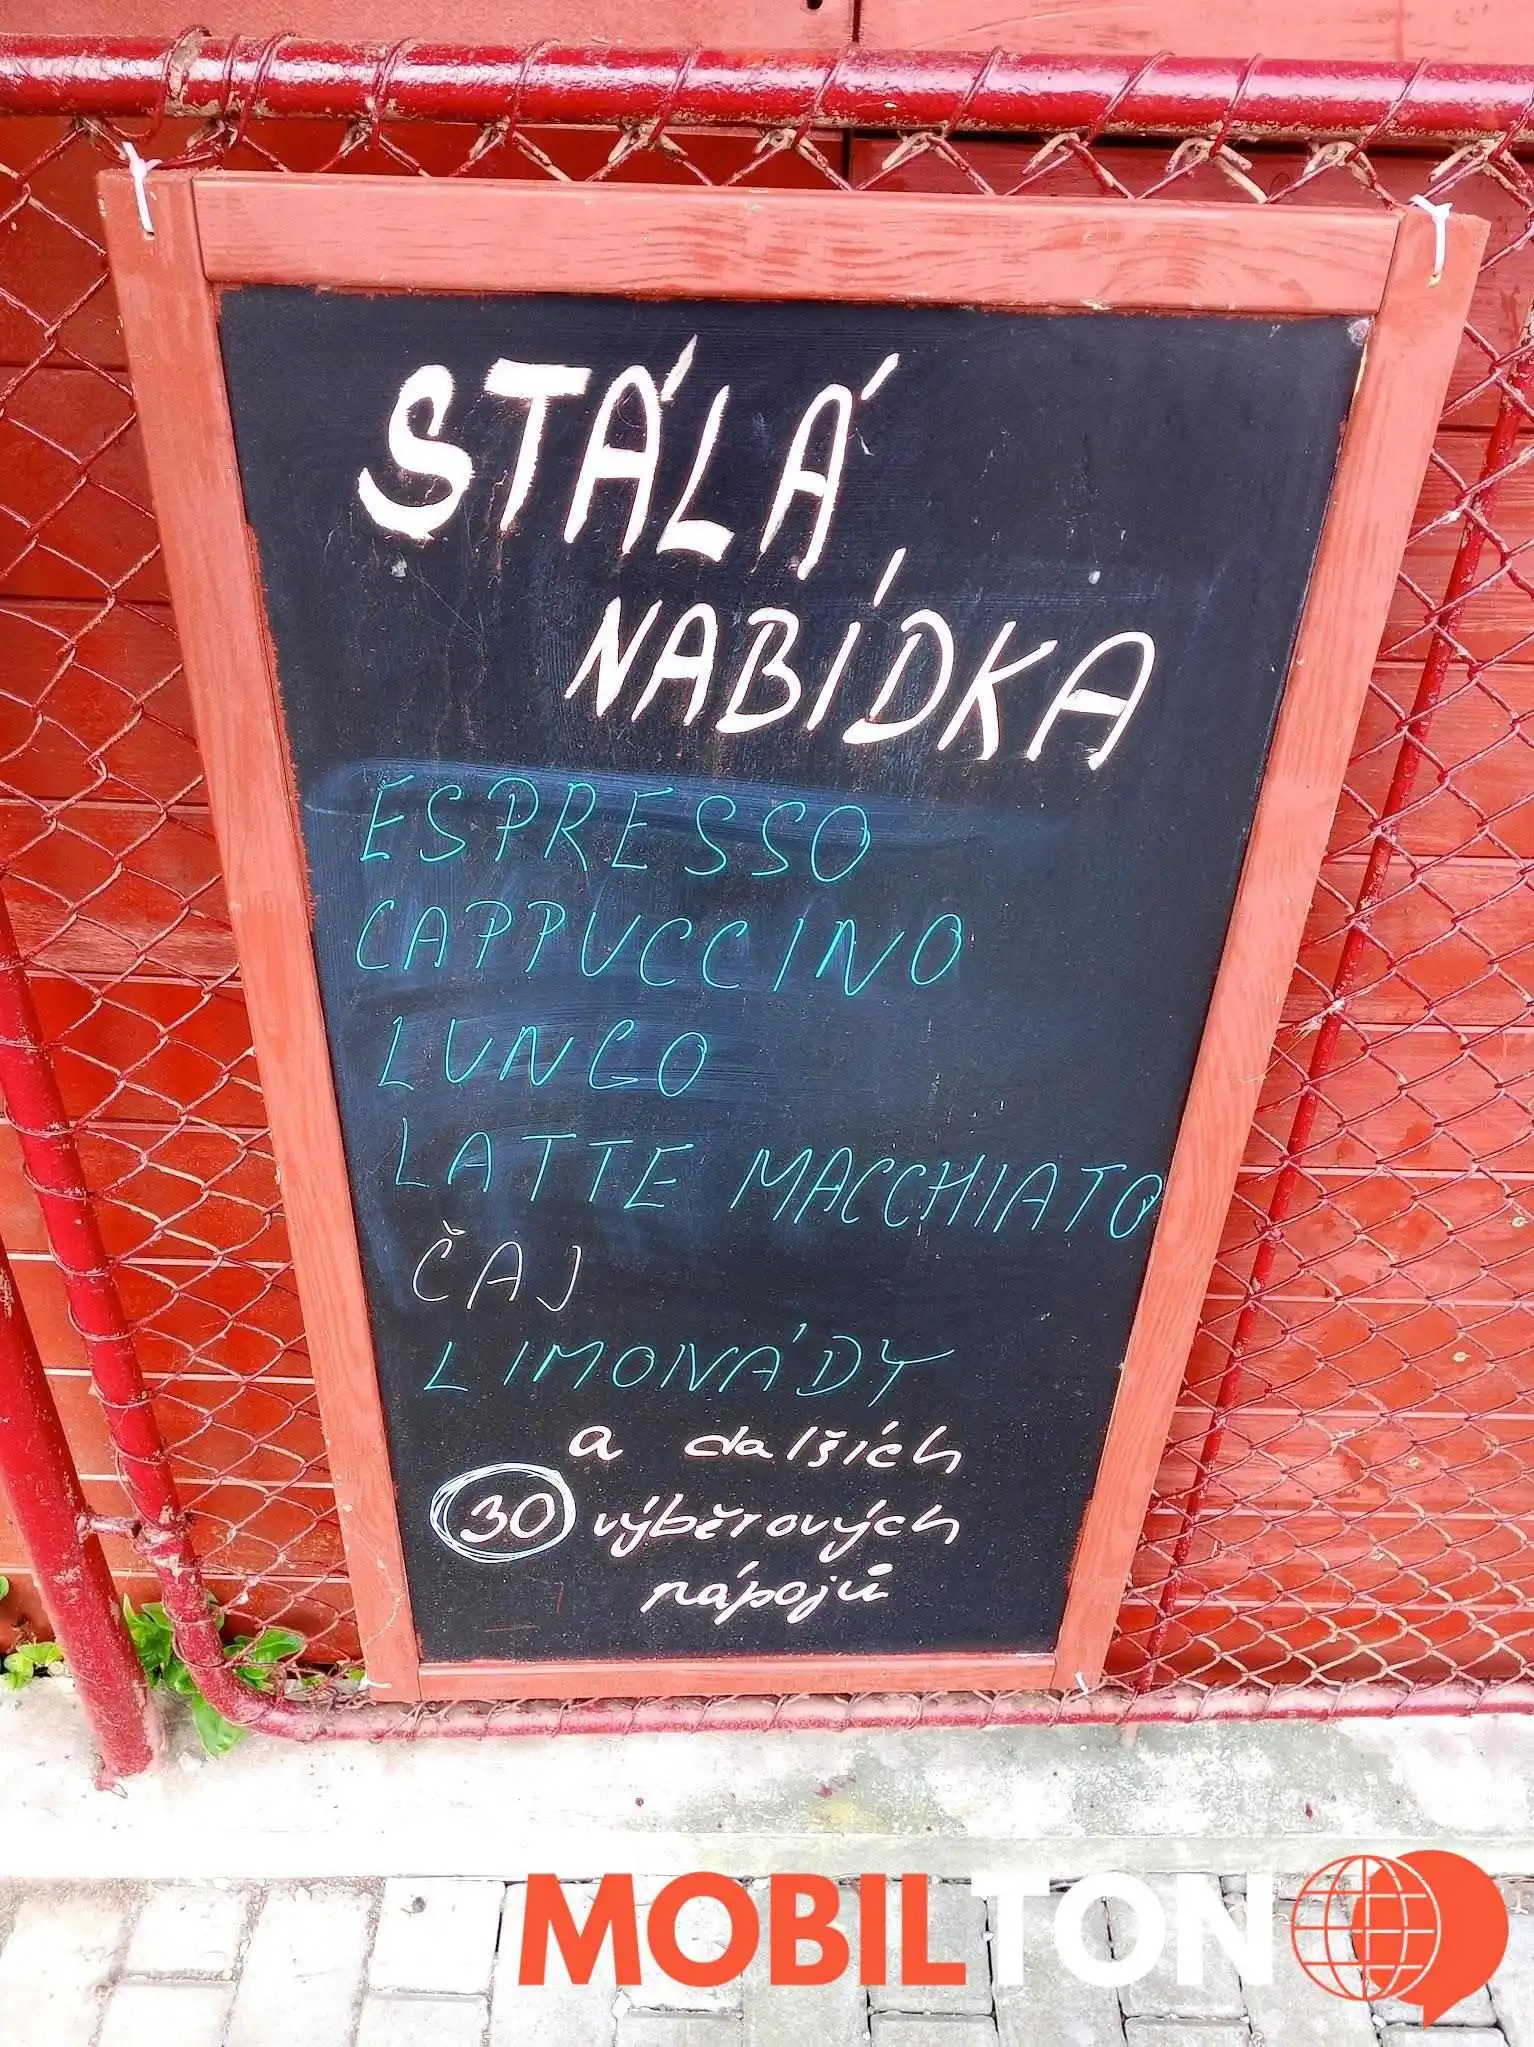 STÁLÁ
NABÍDKA
ESPRESSO
CAPPUCCINO
LUNGO
LATTE MACCHIATO
ČAJ
LIMONÁDY
a dalších
30 výběrových
nápojů
MOBILTON